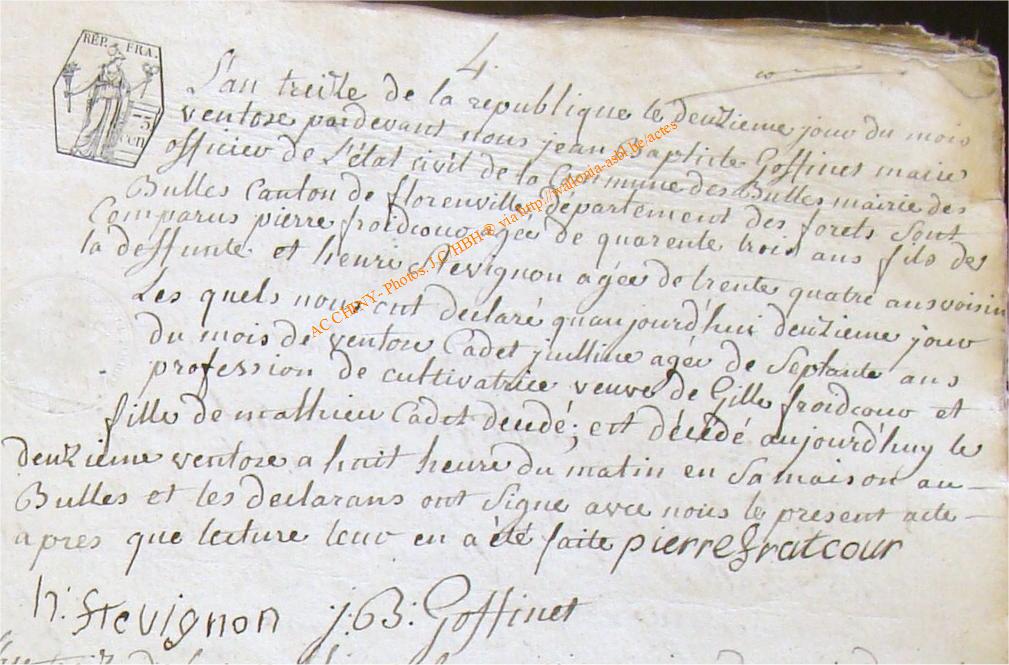 4.
REP. FRA.
75
cen
L'an treize de la republique le deuzieme jour du mois
ventose pardevant nous jean Baptiste Goffinet maire
officier de L'état civil de la Commune des Bulles mairie des
Bulles Canton de florenville département des forets sont
Comparus pierre froidcour agée de quarente trois ans fils de
la deffunte et henri Stevignon agée de trente quatre ans voisin
Les quels nous ont déclaré quaujourd'hui deuzieme jour
du mois de ventose Cadet julline agée de Septante ans
profession de cultivatrice veuve de Gille froidcour et
fille de mathieu Cadet décédé; est décédé aujourd'huy le
deuzieme ventose a huit heure du matin en Sa maison au
Bulles et les declarans ont Signe avec nous le present acte
apres que lecture leur en a été faite pierre fratcour
h: Stevignon J:B: Goffinet
AC CHINY - Photos: J.C HBH ® via http://wallonia-asbl.be/actes